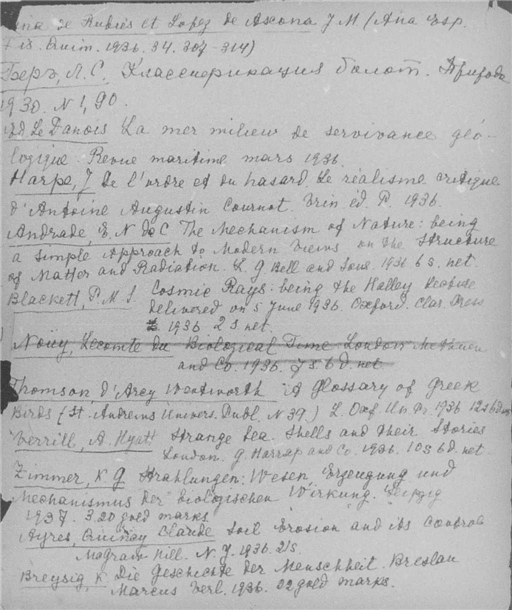 de Rubies et Lopez de Azcona J M (Ana Esp.
Fis. Quim. 1936. 34. 307-314)
Берг, Л. С. Классификация болот. Природа
1930. N 1, 90.
Le Danois La mer milieu de servivance géo-
logique Revue maritime mars 1936.
Harpe, J De l'ordre et du hasard. Le réalisme critique
d'Antoine Augustin Cournot. Vrin ed. P. 1936.
Andrade, E. N. da C The Mechanism of Nature: being
a simple Approach to Modern Views on the Structure
of Matter and Radiation. L. G Bell and Sons 1936 6 s. net.
Blackett, P. M. S. Cosmic Rays: being the Halley lecture
delivered on 5 June 1936. Oxford. Clar. Press
1936. 2 s net.
Noüy, Lecomte du Biological Time London Methuen
and Co. 1936. 7 s 6 d. net
Thomson, d'Arcy Wentworth A Glossary of Greek
Birds (St. Andrews Univers. Publ. N 39.) L. Oxf. Un. Pr. 1936 12s 6d
Verrill, A. Hyatt Strange Sea Shells and their Stories
London. G. Harrap and Co. 1936. 10 s 6 d. net.
Zimmer, K. G Strahlungen: Wesen, Erzeugung und
Mechanismus der biologischen Wirkung. Leipzig
1937. 3.20 gold marks
Ayres, Quincy Claude Soil Erosion and its Control
McGraw Hill. N. Y. 1936. 21s.
Breysig, K Die Geschichte der Menschheit. Breslau
Marcus Verl. 1936. 02 gold marks.